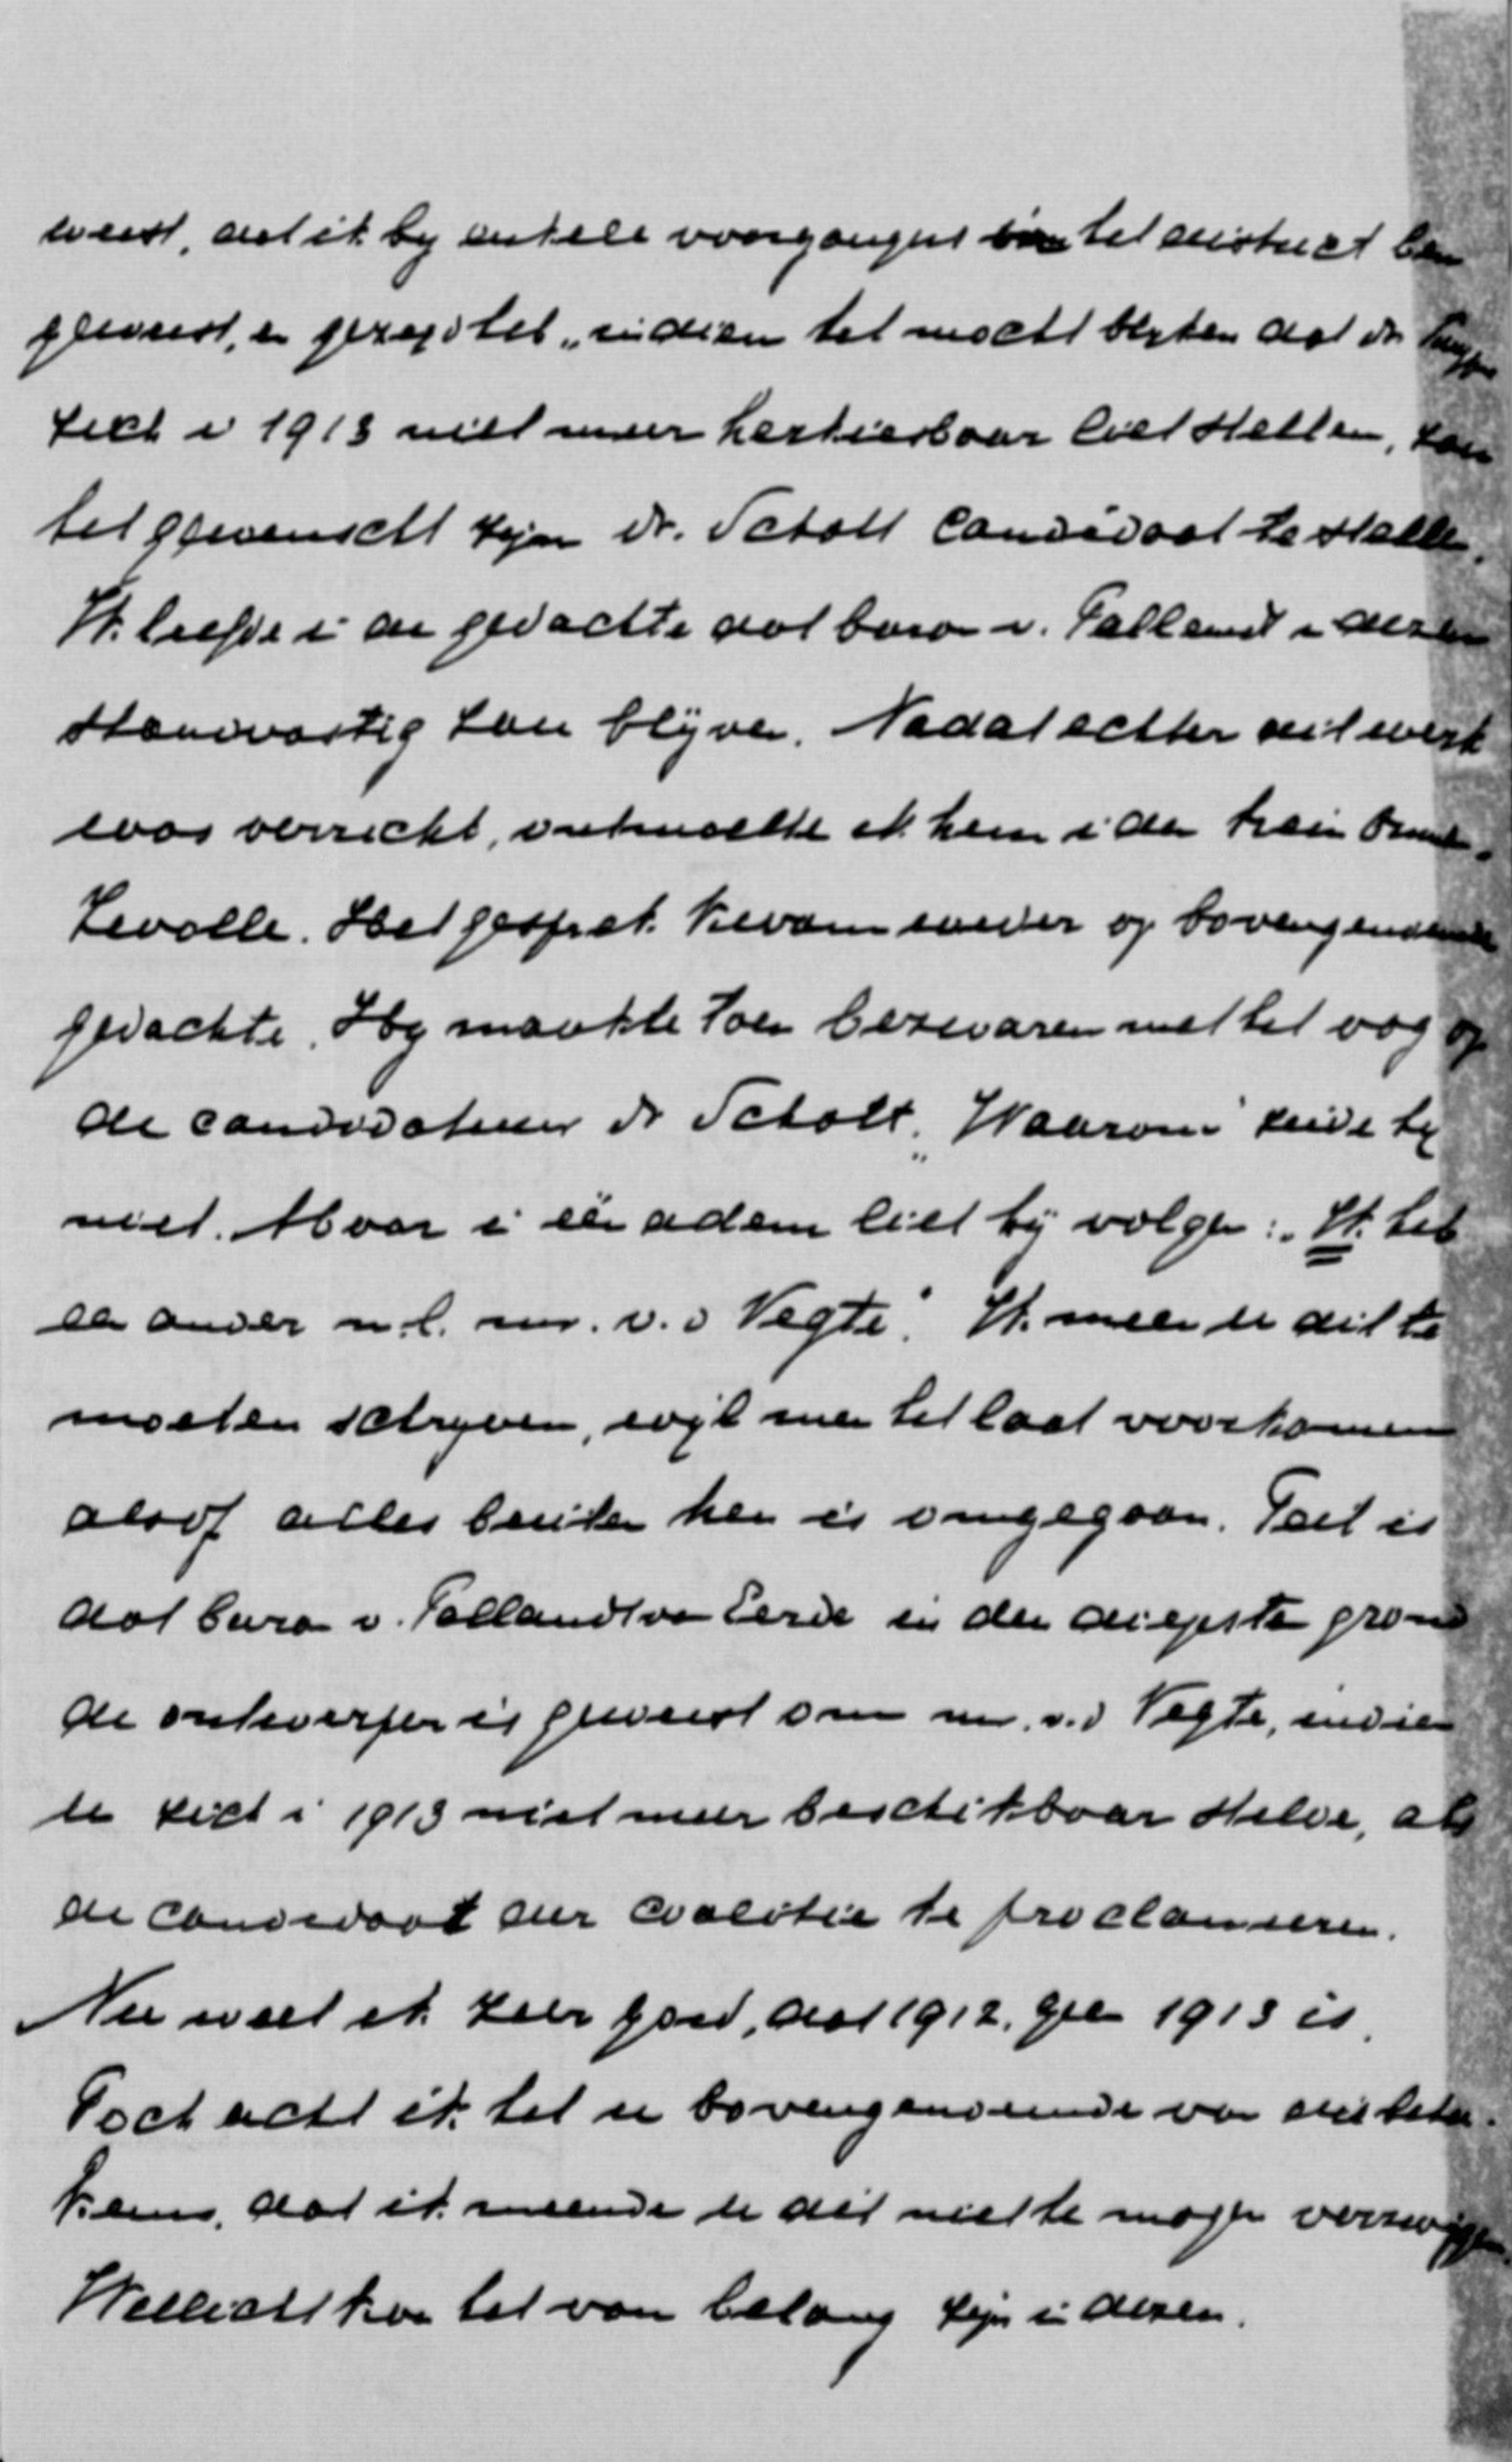 weest, dat ik by enkele voorgangers in het district ben
geweest, en gezegd heb „indien het mocht blyken dat dr
zich in 1913 niet meer herkiesbaar liet stellen, zou
het gewenscht zijn dr. Scholl candidaat te stellen.
Ik leefde in de gedachte dat baron v. Palland in dezen
standvastig zou blijven. Nadat echter dit werk
was verricht, ontmoette ik hem in den trein
Zwolle. Het gesprek kwam weder op bovengenoemde
gedachte. Hy maakte toen bezwaren met het oog op
de candidatuur dr Scholl. „Waarom" zeide hy
niet. Maar in één adem liet hij volgen: „Ik heb
een ander n.l. mr. v. d Vegte." Ik meende dit te
moeten schryven, wijl men het laat voorkomen
alsof alles buiten hen is omgegaan. Feit is
dat baron v. Pallandt van Eerde in den diepsten grond
de ontwerper is geweest om mr. v. d Vegte, indien
u zich in 1913 niet meer beschikbaar stelde, als
de candidaat der coalitie te proclameeren.
Nu weet ik zeer goed, dat 1912, geen 1913 is.
Toch acht ik het u bovengenoemde van die betee-
kenis, dat ik meende u dit niet te mogen verzwijgen
Wellicht kan het van belang zijn in dezen.